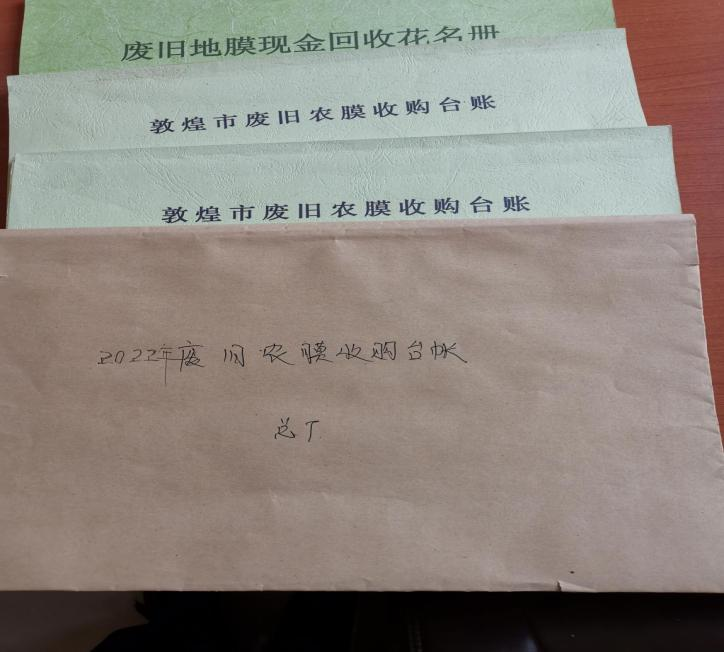 废旧地膜现金回收花名册
敦煌市废旧农膜收购台账
敦煌市废旧农膜收购台账
2022年废旧农膜收购台帐
总厂